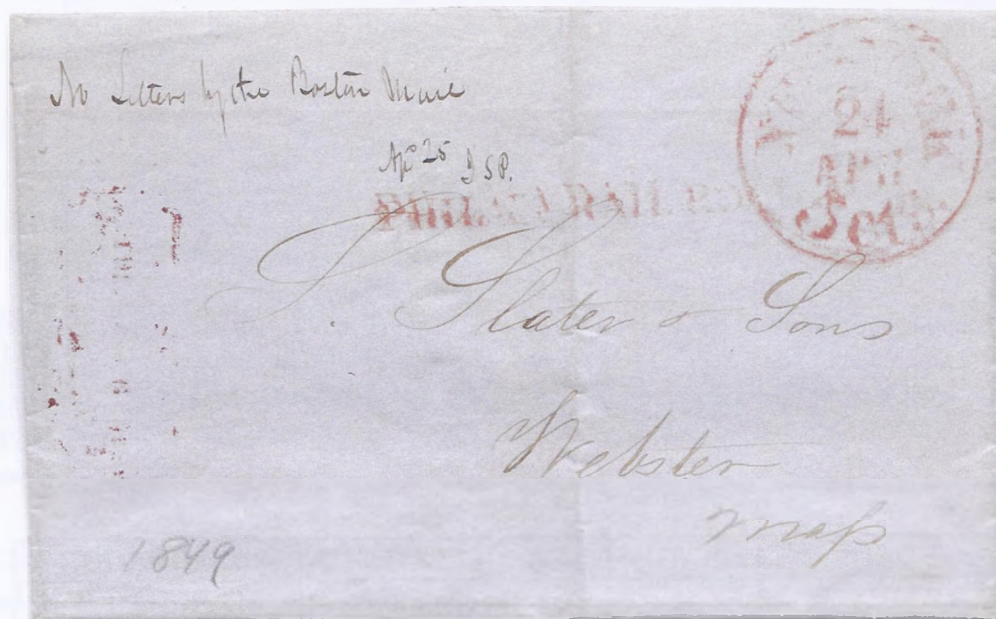 No Letters by the Boston Mail
24
APR
Apl 25 J S P.
PHILADA RAIL R.
5 cts
S. Slater & Sons
Webster
Mass
1849